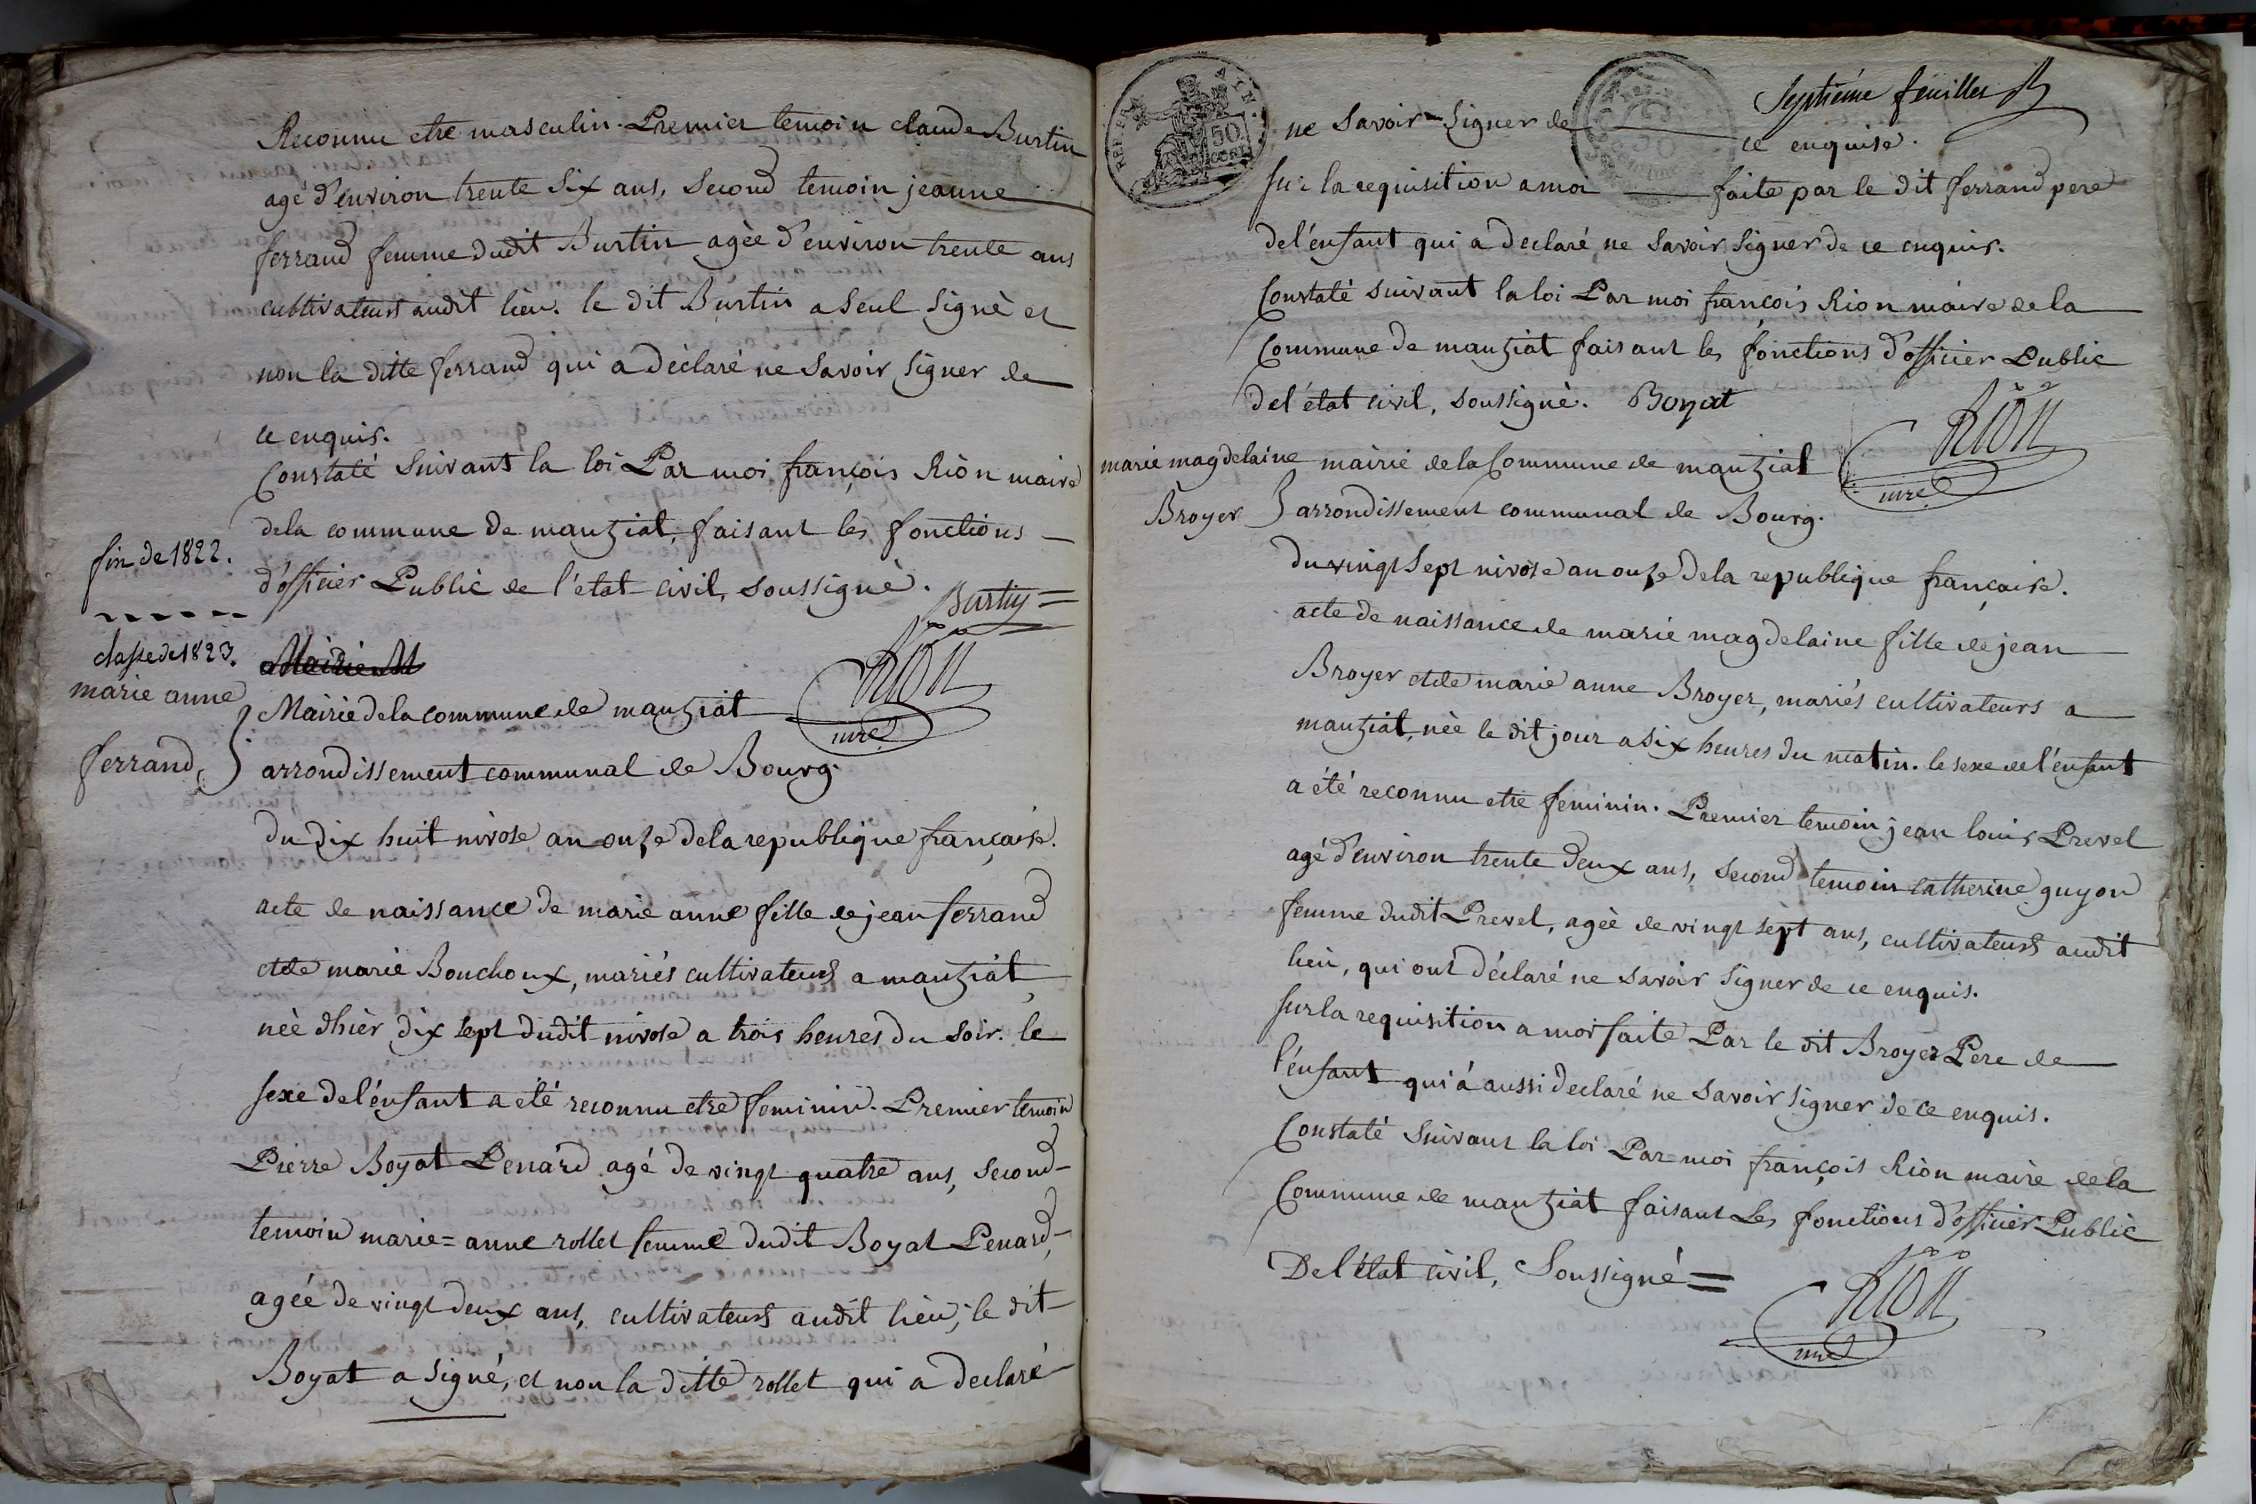 Reconnu etre masculin. Premier temoin claude Burtin
agé d'environ trente six ans, second temoin jeanne
ferrand femme dudit Burtin agèe d'environ trente ans
cultivateurs audit lieu. le dit Burtin a seul signè et
non la ditte ferrand qui a dèclaré ne savoir signer de
ce enquis.
Constaté suivant la loi Par moi françois Rion maire
dela commune de manziat, faisant les fonctions
d'officier Public de l'état civil, soussignè.
Burtin
fin de 1822.
Rion
mre
classe de 1823.
marie anne
ferrand
Mairie M
Mairie dela commune de manziat
arrondissement communal de Bourg.
du dix huit nivose an onze dela republique française.
acte de naissance de marie anne fille de jean ferrand
et de marie Bouchoux, mariés cultivateurs a manziat
née dhièr dix sept dudit nivose a trois heures du soir. le
sexe de l'énfant a été reconnu etre feminin. Premier temoin
Pierre Boyat Penard agé de vingt quatre ans, second
temoin marie=anne rollet femme dudit Boyat Penard,
agée de vingt deux ans, cultivateurs audit lieu; le dit
Boyat a signé, et non la ditte rollet qui a declaré
REP. FRA. AYN.
50
CENT
Septiéme feuillet
ne savoir signer de ce enquise.
sur la requisition a moi faite par le dit ferrand pere
de l'énfant qui a declaré ne savoir signer de ce enquis.
Constaté suivant la loi Par moi françois Rion maire de la
Commune de manziat faisant les fonctions d'officier Public
de l'état civil, soussigné. Boyat
Rion
mre
marie magdelaine
Broyer
mairie dela Commune de manziat
arrondissement communal de Bourg.
du vingt sept nivose an onze dela republique française.
acte de naissance de marie magdelaine fille de jean
Broyer et de marie anne Broyer, mariés cultivateurs a
manziat, née le dit jour a six heures du matin. le sexe de l'énfant
a été reconnu etre feminin. Premier temoin jean louis Prevel
agé d'environ trente deux ans, second temoin catherine guyon
femme dudit Prevel, agèe de vingt sept ans, cultivateurs audit
lieu, qui ont déclaré ne savoir signer de ce enquis.
sur la requisition a moi faite Par le dit Broyer Pere de
l'énfant qui á aussi declaré ne savoir signer de ce enquis.
Constaté suivant la loi Par moi françois Rion maire de la
Commune de manziat faisant Les fonctions d'officier Public
De l'état civil, Soussigné
Rion
mre